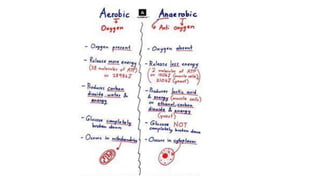 Aerobic A Anaerobic
Oxygen Anti oxygen
- Oxygen present
- Oxygen absent
- Release more energy
(38 molecules of ATP)
or 2898kJ
- Release less energy
(2 molecules of ATP)
(muscle cells)
(yeast)
- Produces carbon
dioxide, water &
energy
- Produces lactic acid
& energy (muscle cells)
or ethanol, carbon
dioxide & energy
(yeast)
- Glucose completely
broken down
- Glucose NOT
completely broken down
- Occurs in mitochondria
- Occurs in cytoplasm